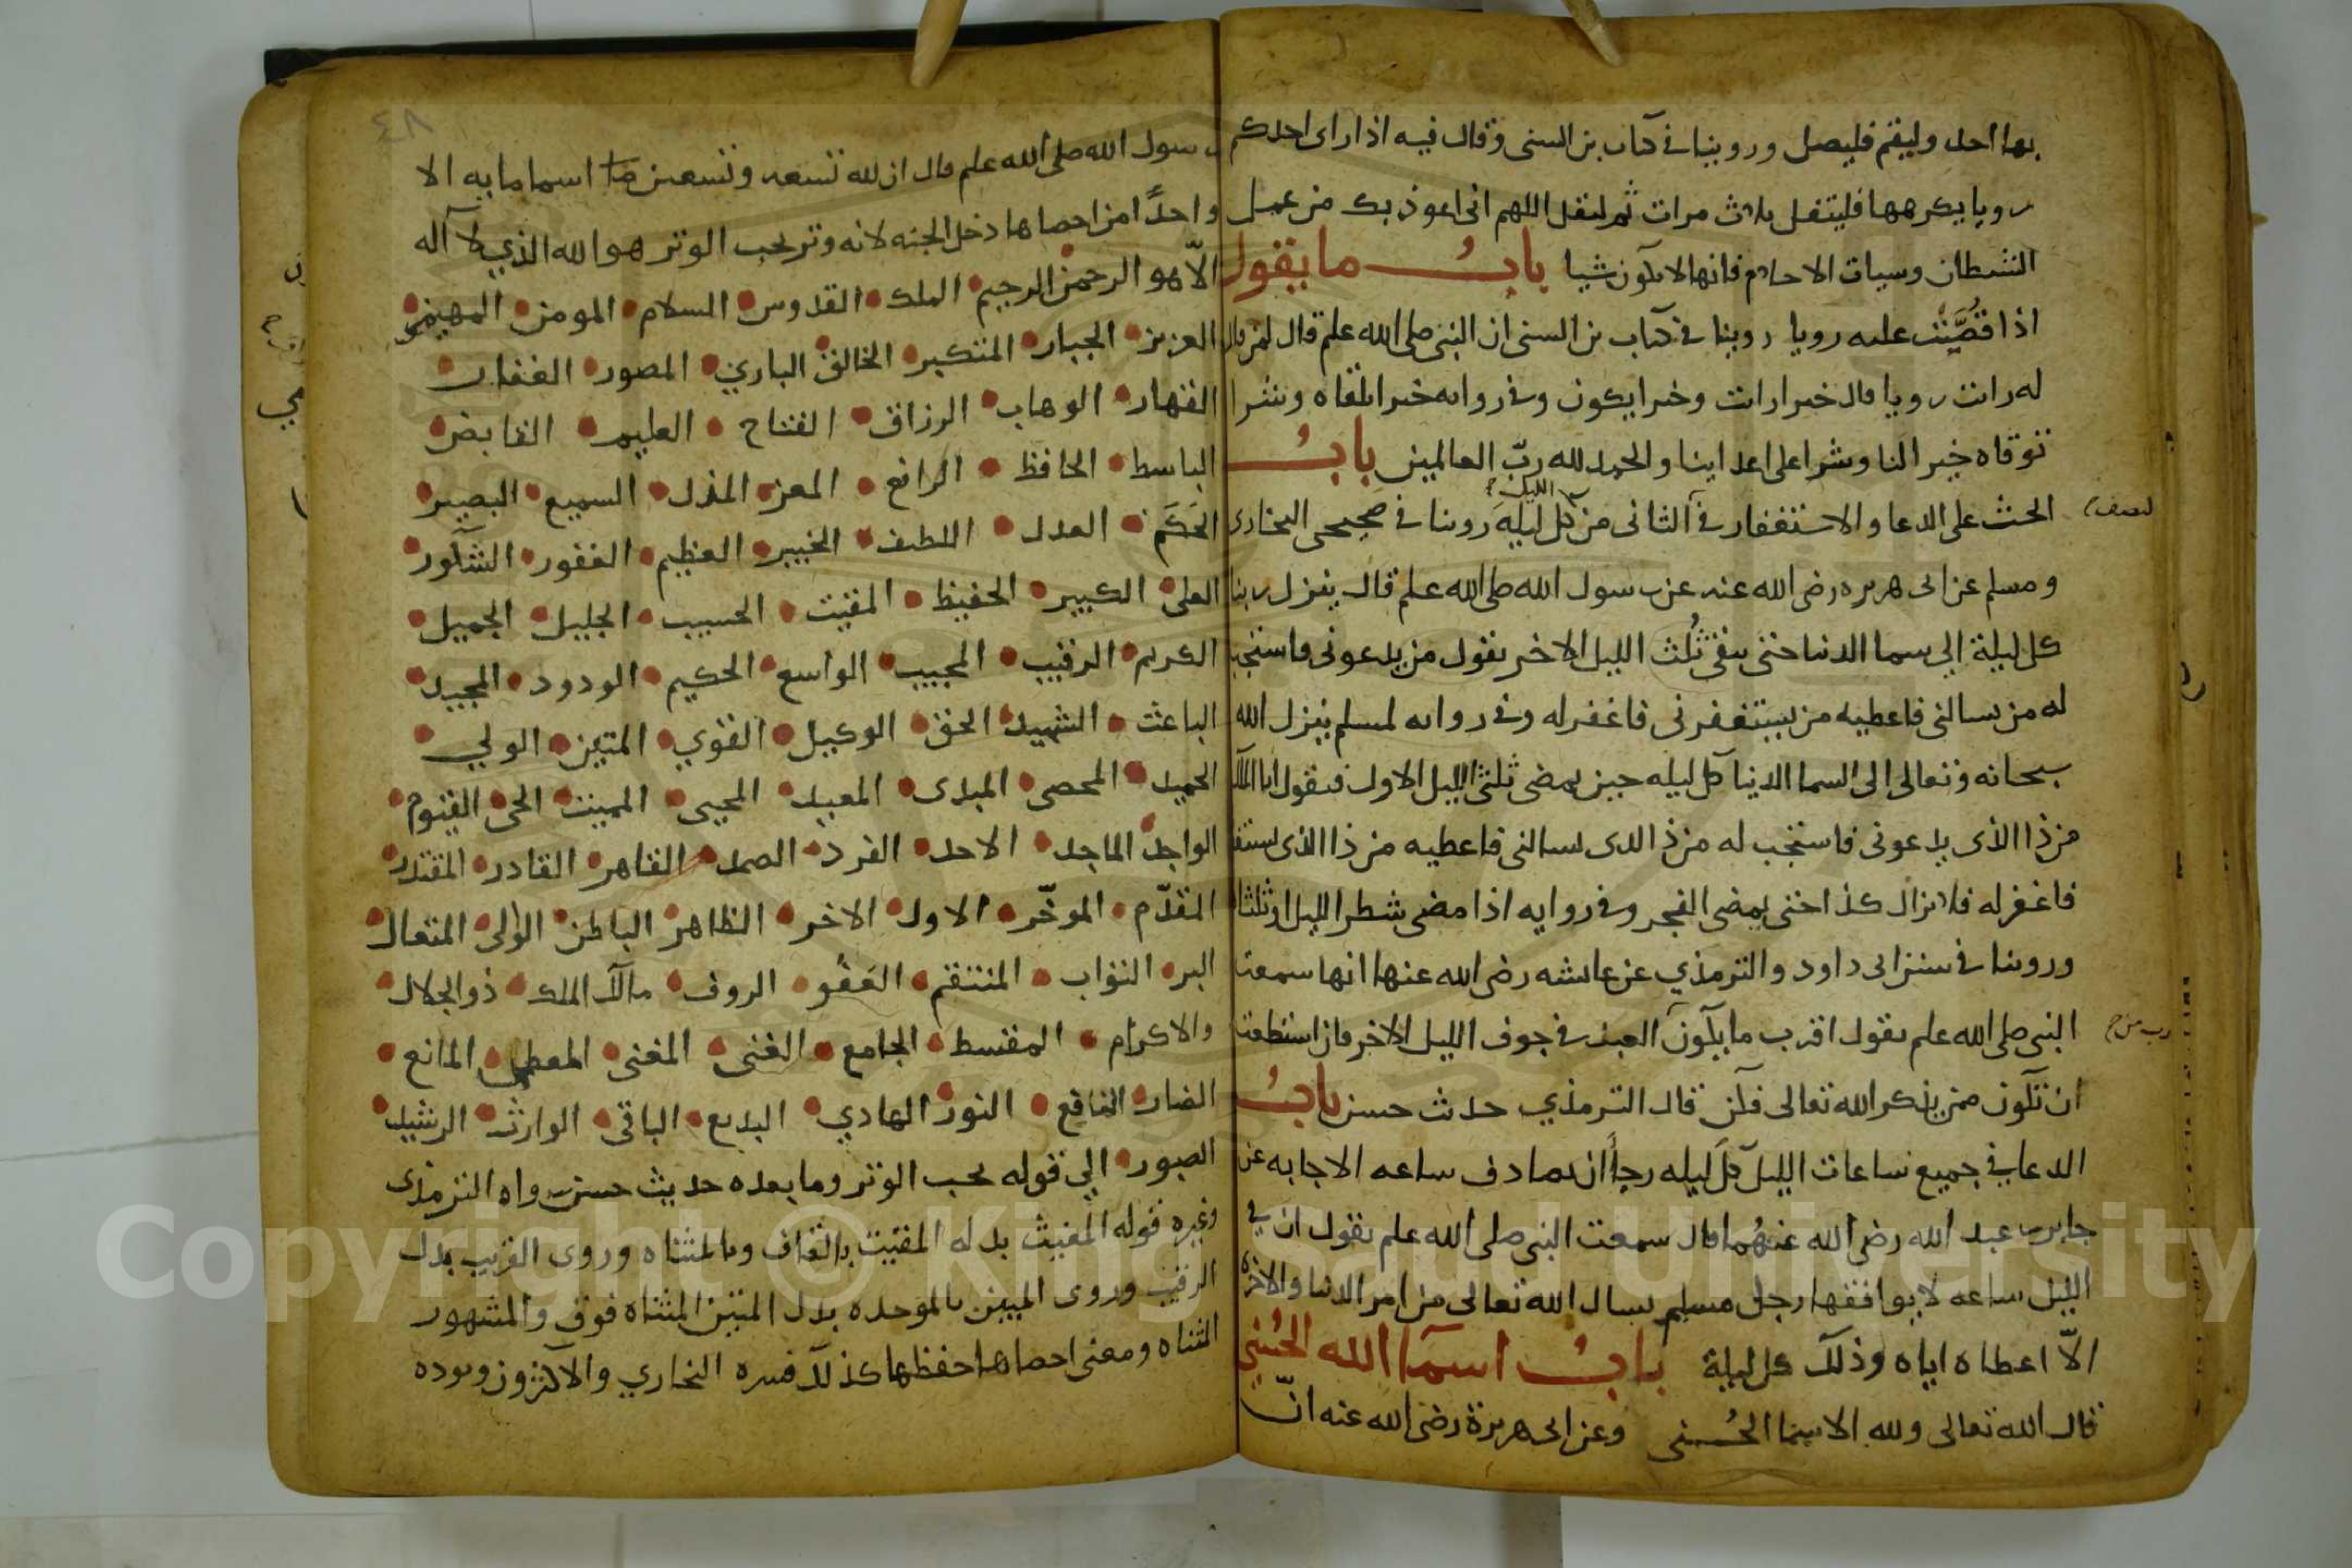 بها احد وليقم فليصل وروينا في كتاب بن السنى وقال فيه اذا راى احدكم
رويا يكرهها فليتفل ثلاث مرات ثم ليقل اللهم انى اعوذ بك من عمل
الشيطان وسيات الاحلام فانها لا تكون شيا باب ما يقول
اذا قصت عليه رويا روينا في كتاب بن السنى ان النبى صلى الله علم قال لمن قال
له رات رويا قال خيرا رات وخيرا يكون وفي روايه خيرا تلقاه وشرا
توقاه خيرا لنا وشرا على اعداينا والحمد لله ربّ العالمين باب
الحث على الدعا والاستغفار في الثانى من كل ليله روينا في صحيحى البخارى
النصف
الليل
ومسلم عن ابى هريره رضى الله عنه عن رسول الله صلى الله علم قال ينزل ربنا
كل ليلة الي سما الدنيا حتى يبقى ثُلث الليل الاخر يقول من يدعونى فاستجيب
له من يسالنى فاعطيه من يستغفرنى فاغفر له وفي روايه لمسلم ينزل الله
سبحانه وتعالى الى السما الدنيا كل ليله حين يمضى ثلث الليل الاول فيقول انا الملك
من ذا الذى يدعونى فاستجب له من ذا الدى يسالنى فاعطيه من ذا الذى يستغفر
فاغفر له فلا يزال كذا حتى يمضى الفجر وفي روايه اذا مضى شطر الليل او ثلثا
وروينا في سنن ابى داود والترمذي عن عايشه رضى الله عنها انها سمعت
النبى صلى الله علم يقول اقرب ما يكون العبد في جوف الليل الاخر فان استطعت
ان تكون ممن يذكر الله تعالى فكن قال الترمذي حديث حسن باب
الدعا في جميع ساعات الليل كل ليله رجا ان يصادف ساعه الاجابه عن
جابر بن عبد الله رضى الله عنهُما قال سمعت النبى صلى الله علم يقول ان في
الليل ساعه لا يوافقها رجل مسلم يسال الله تعالى من امر الدنيا والاخره
الاّ اعطاه اياه وذلك كل ليلة باب اسمآ الله الحُسنى
قال الله تعالى ولله الاسما الحُسنى وعن ابى هريرة رضى الله عنه انّ
٤٨
رسول الله صلى الله علم قال ان لله تسعه وتسعين اسما مايه الا
واحدًا من احصاها دخل الجنه لانه وتر يحب الوتر هو الله الذي لا آله
الاّ هو الرحمن الرحيم الملك القدوس السلام المومن المهيمن
العزيز الجبار المتكبر الخالق الباري المصور الغفار
القهار الوهاب الرزاق الفتاح العليم القابض
الباسط الخافظ الرافع المعز المذل السميع البصير
الحَكَم العدل اللطيف الخبير العظيم الغفور الشكور
العلى الكبير الحفيظ المقيت الحسيب الجليل الجميل
الكريم الرقيب المجيب الواسع الحكيم الودود المجيد
الباعث الشهيد الحق الوكيل القوي المتين الولي
الحميد المحصى المبدى المعيد المحيى المميت الحى القيوم
الواجد الماجد الاحد الفرد الصمد القاهر القادر المقتدر
المقدّم الموخّر الاول الاخر الظاهر الباطن الوالى المتعال
البر التواب المنتقم العَفُو الروف مالك الملك ذو الجلال
والاكرام المقسط الجامع الغنى المغنى المعطى المانع
الضار النافع النور الهادي البديع الباقى الوارث الرشيد
الصبور الي قوله يحب الوتر وما بعده حديث حسن رواه الترمذى
وغيره قوله المغيث بدله المقيت بالقاف وبالمثناه وروى القريب بدل
الرقيب وروى المبين بالموحده بدل المتين المثناه فوق والمشهور
المثناه ومعنى احصاها احفظها كذلك فسره البخاري والاكثرون ويويده
Copyright © King Saud University